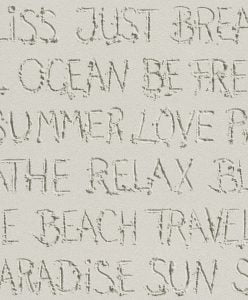 LiSS JUST BREA
L OCEAN BE FRE
SUMMER LOVE P
ATHE RELAX BL
E BEACH TRAVEL
ARADiSE SUN S